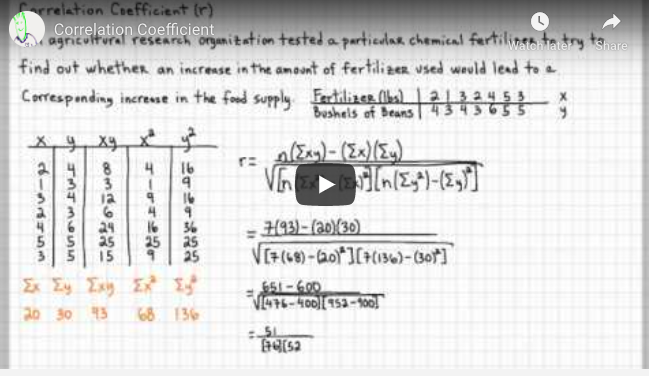 Correlation Coefficient (r)
Correlation Coefficient
Watch later
Share
agricultural research organization tested a particular chemical fertilizer to try to
find out whether an increase in the amount of fertilizer used would lead to a
Corresponding increase in the food supply.
Fertilizer (lbs) | 2 1 3 2 4 5 3 x
Bushels of Beans | 4 3 4 3 6 5 5 y
x y xy x² y²
2 4 8 4 16
1 3 3 1 9
3 4 12 9 16
2 3 6 4 9
4 6 24 16 36
5 5 25 25 25
3 5 15 9 25
Σx Σy Σxy Σx² Σy²
20 30 93 68 136
r = n(Σxy) - (Σx)(Σy)
√[n(Σx² (Σx)²][n(Σy²)-(Σy)²]
= 7(93) - (20)(30)
√[7(68)-(20)²][7(136)-(30)²]
= 651 - 600
√[476-400][952-900]
= 51
[76][52